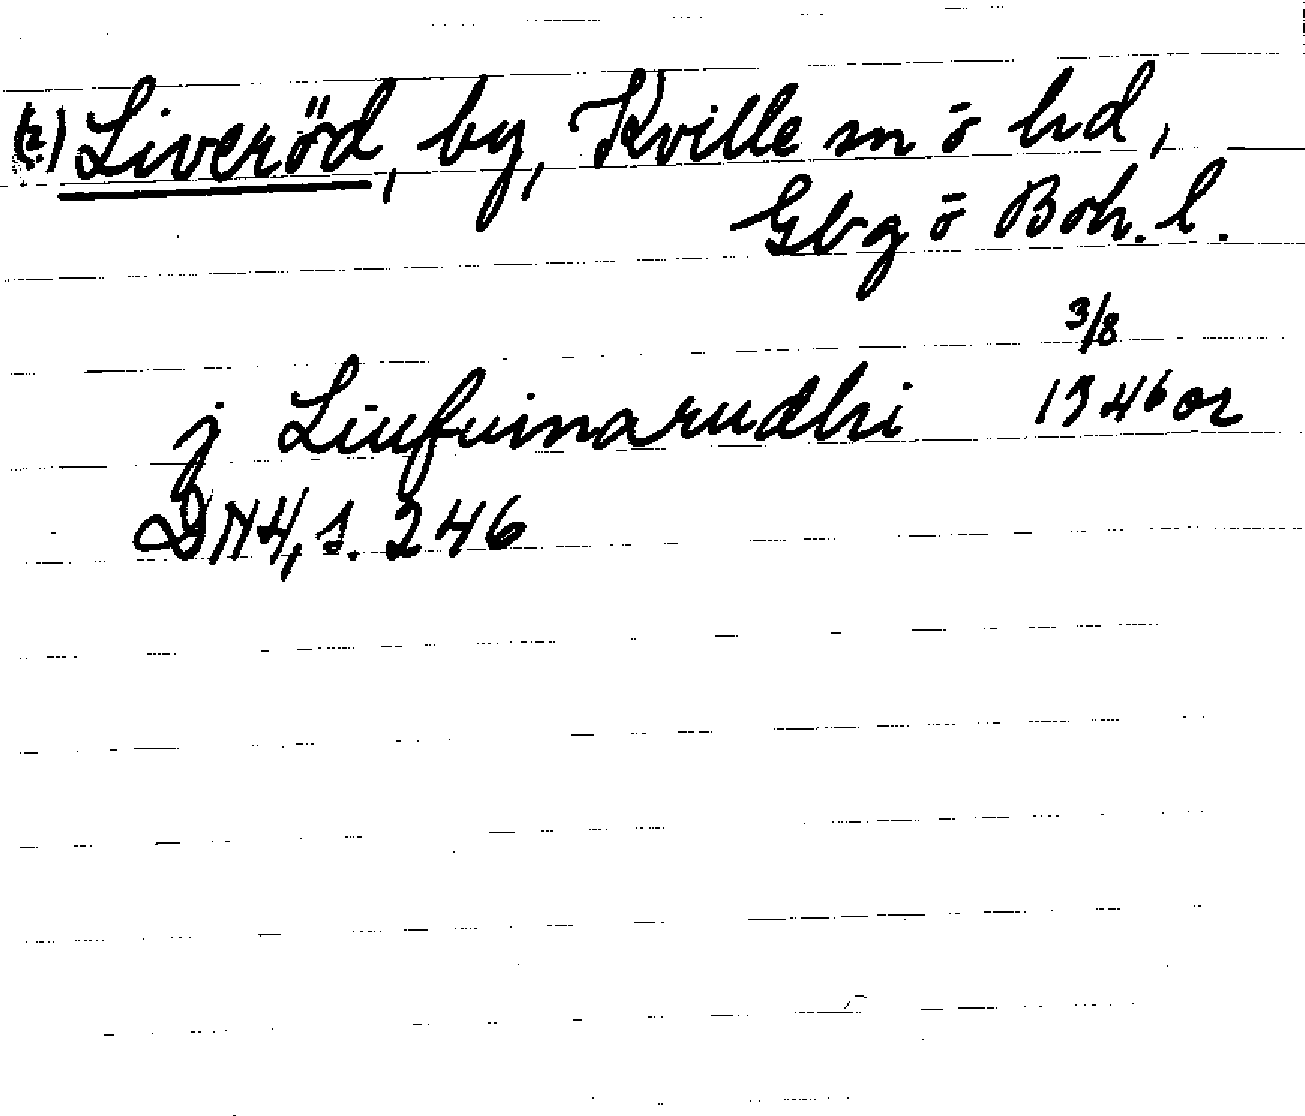 (2) Liveröd, by, Kville sn o hd,
Gbg o Boh. l.
3/8
j Liufuinarudhi 1346 or
DN 4, s. 246